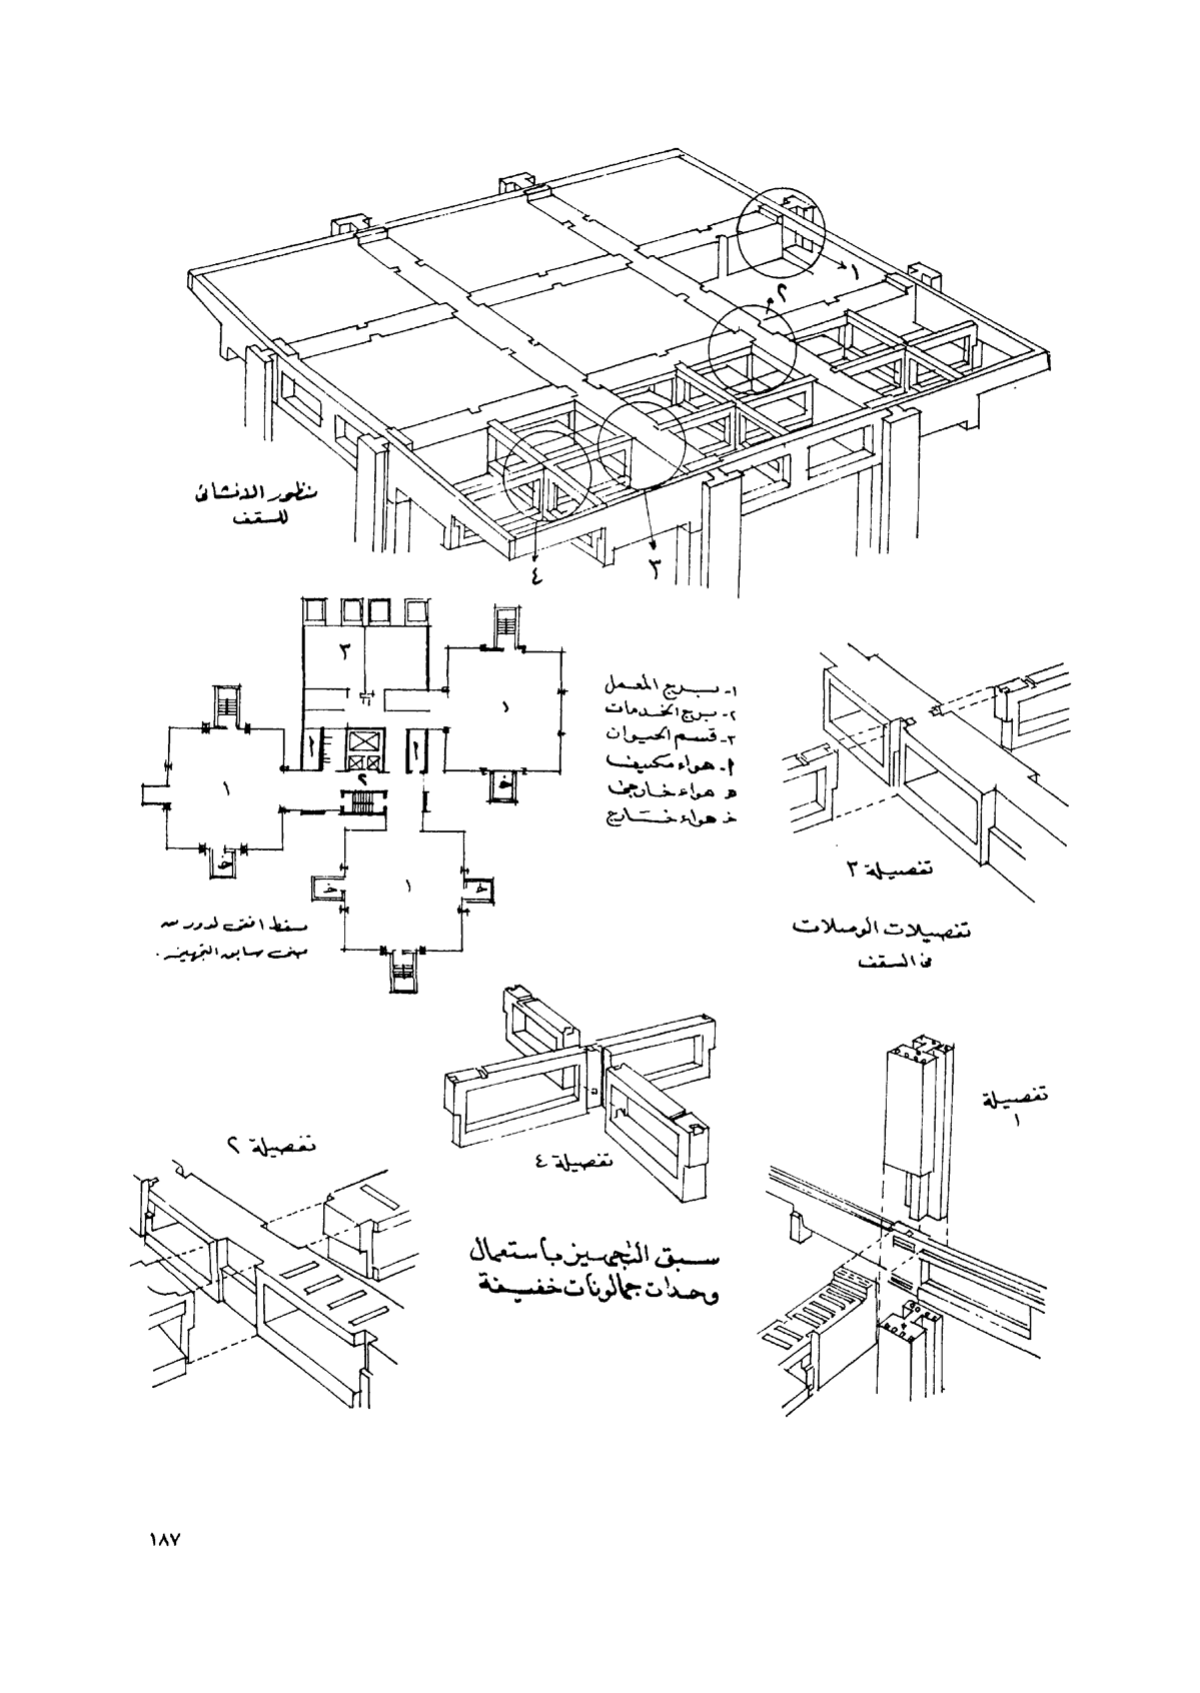 ١
٢
٣
٤
منظور الانشائى
للسقف
٣
١
١
أ
أ
٢
١
خ
خ
خ
خ
١- برج المعمل
٢- برج الخدمات
٣- قسم الحيوان
أ- هواء مكيف
ه هواء خارجى
خ هواء خارج
مسقط افقى لدور من
مبنى سابق التجهيز.
تفصيلة ٣
تفصيلات الوصلات
فى السقف
تفصيلة
١
تفصيلة ٤
تفصيلة ٢
سبق التجهيز باستعمال
وحدات جمالونات خفيفة
١٨٧